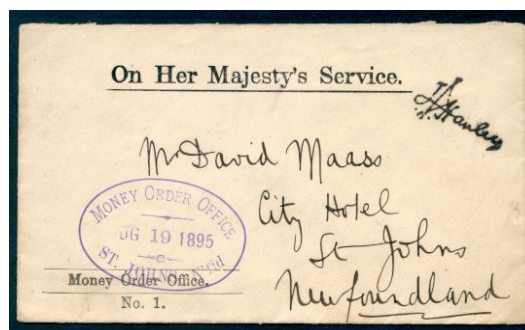 On Her Majesty's Service.
Hanley
Mr David Maass
City Hotel
St Johns
Newfoundland
MONEY ORDER OFFICE
UG 19 1895
ST. JOHNS N'F'd
Money Order Office.
No. 1.